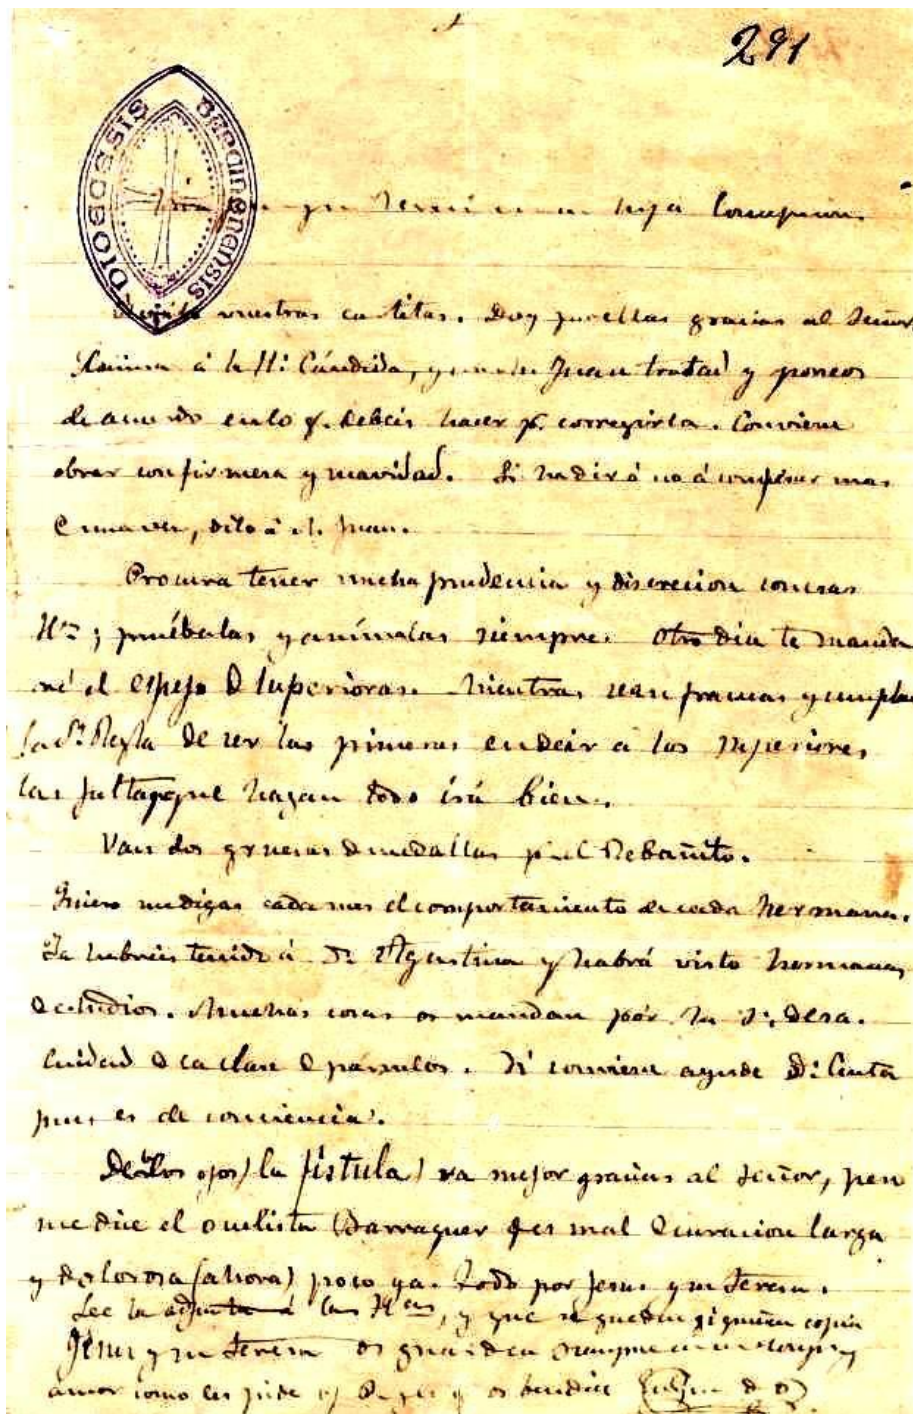 291
DIOECESIS BARCINONENSIS
hija Concepción.
vuestras cartitas. Doy por ellas gracias al Señor
Anima á la Hª Cándida, y con Juan tratad y poneos
de acuerdo en lo q. debeis hacer pª corregirla. Conviene
obrar con firmeza y suavidad. Si
dilo á Juan.
Procura tener mucha prudencia y discrecion con esas
Hªs; pruébalas y anímalas siempre. Otro dia te manda
ré el espejo D Superioras. Mientras sean francas y cumplan
la Sª Regla de ser las primeras en decir á los Superiores
las faltas que hagan todo irá bien.
Van dos gruesas D medallas pª el Rebañito.
Quiero me digas cada mes el comportamiento de cada hermana.
Ya habreis tenido á Dª Agustina y habrá visto hermanas
D estudios. Muchas cosas os mandan por
Cuidad D la clase D párvulos. Si conviene ayude Dª Cinta
pues es de conciencia.
De los ojos (la fístula) va mejor gracias al Señor, pero
me dice el oculista Barraquer q es mal D curacion larga
y dolorosa (ahora) poco ya. Todo por Jesus y su Teresa.
Lee la adjunta á las Hªs, y que se queden si quieren copia
Jesus y su Teresa os guarden siempre en su
amor como les pide y os bendice